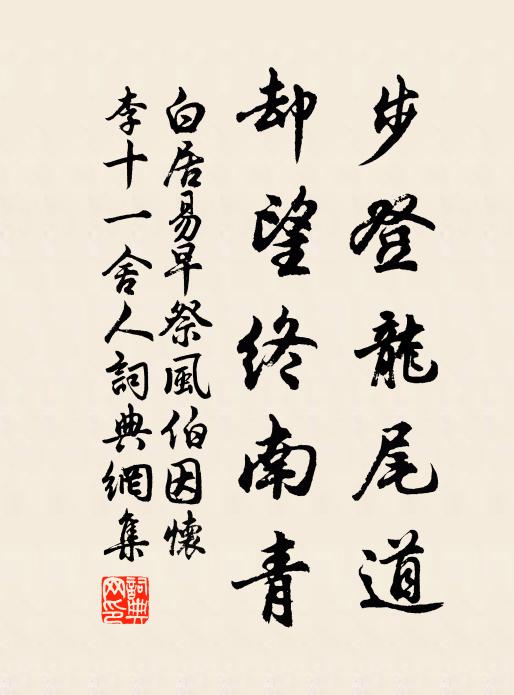 步登龍尾道
却望終南青
白居易早祭風伯因懷
李十一舍人詞典網集